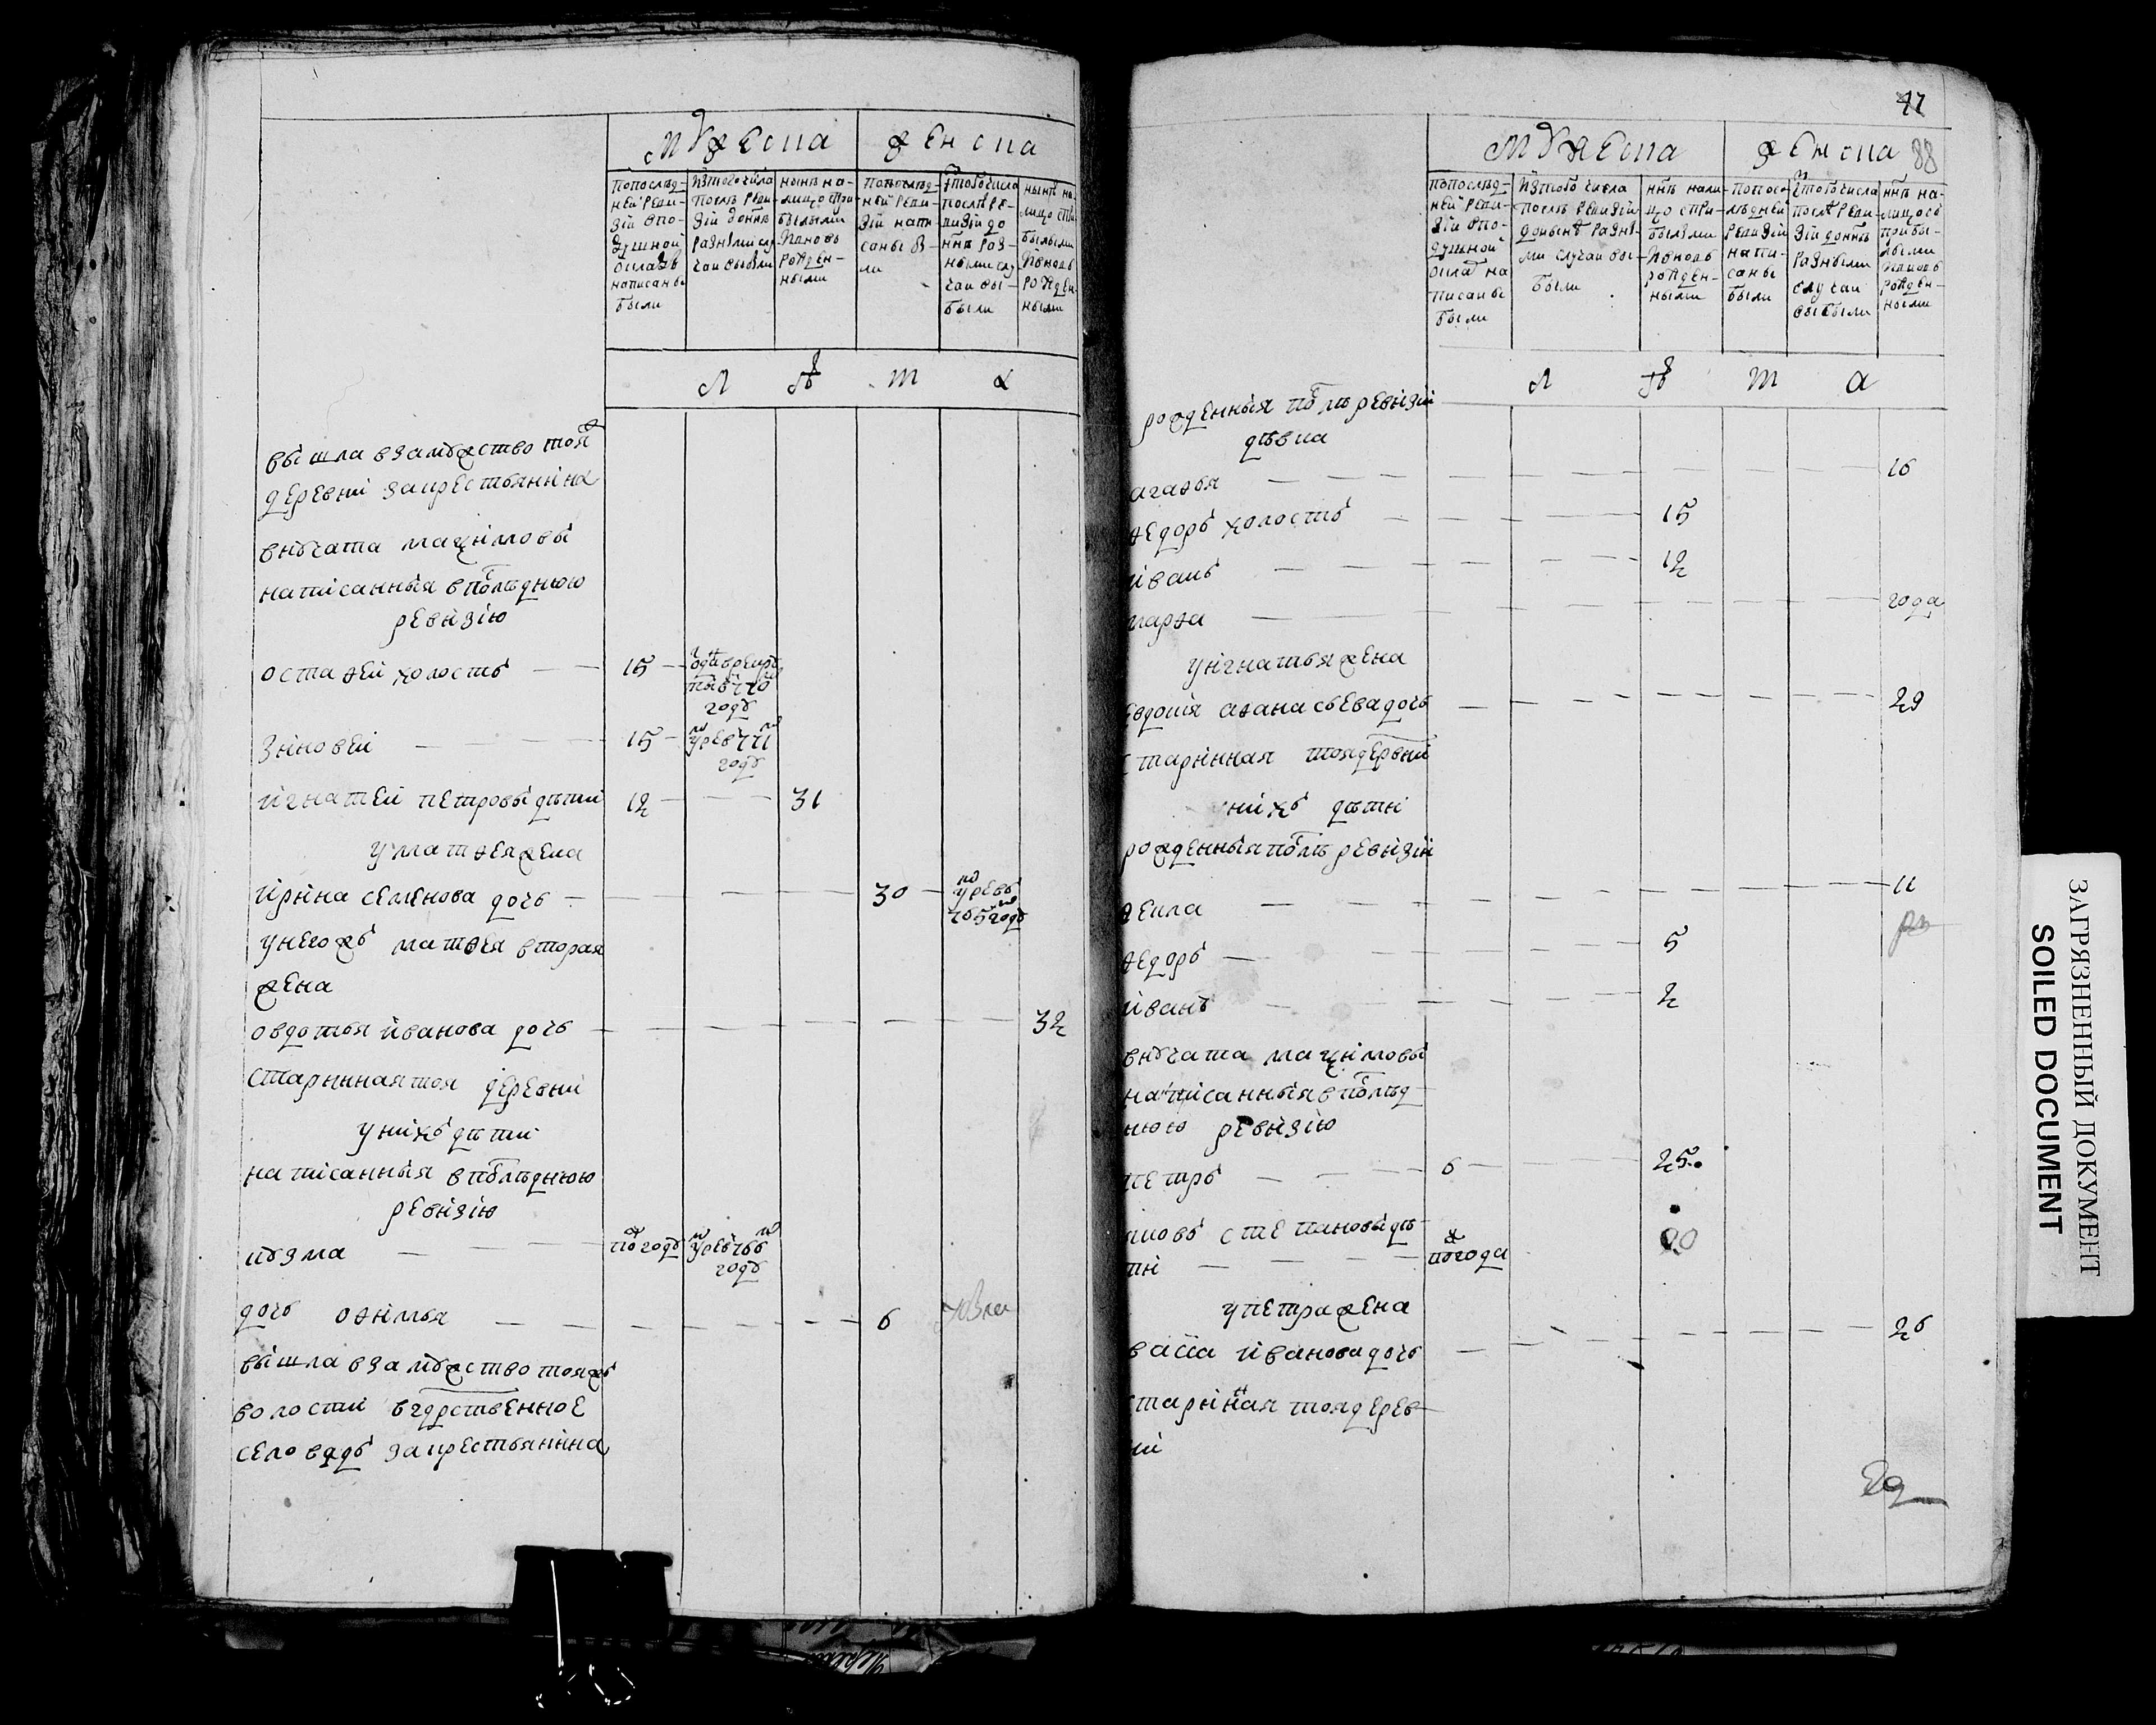 мужеска
женска
попослѣд-
ней реви-
зіи впо-
душной
окладъ
написаны
были
изтого числа
послѣ реви-
зіи донне
разными слу-
чаи выбыли
нынѣ на-
лицо при-
былыми
ивновь
рожден-
ными
попослѣд-
ней реви-
зіи напи-
саны бы-
ли
изтого числа
послѣ ре-
визіи до
ннѣ раз-
ными слу-
чаи вы-
были
нынѣ на-
лицо при-
былыми
ивновь
рожден-
ными
л ѣ т а
вышла взамужство тояж
деревни закрестьянина
внучата маѯимовы
написанныя впослѣднюю
ревизію
остафей холостъ 15
году
зиновей 15
году
игнатей петровы дѣти 12 31
уматфея жена
ирина семенова дочь 30
унегожъ матфея вторая
жена
овдотья иванова дочь 32
старинная тоя деревни
унихъ дѣти
написанныя впослѣднюю
ревизію
кузма
году
дочь офимья 6
вышла взамужство тояжъ
волости вгдрственное
село вядь закрестьянина
47
88
мужеска
женска
попослѣд-
ней реви-
зіи впо-
душной
оклад на
писаны
были
изтого числа
послѣ ревизіи
донынѣ разны-
ми случаи вы-
были
ннѣ нали-
цо при-
былыми
ивновь
рожден-
ными
попосл
ѣдней
ревизіи
напи-
саны
были
изтого числа
послѣ реви-
зіи доннѣ
разными
случаи
выбыли
ннѣ на-
лицось
прибы-
лыми
ивновь
рожден-
ными
л ѣ т а
рожденныя послѣ ревизіи
дѣвка
агафья 16
федоръ холостъ 15
иванъ 12
марфа года
уигнатья жена
евдокія афанасьева дочь 29
старинная тоядеревни
унихъ дѣти
рожденныя послѣ ревизіи
фекла 11
федоръ 5
иванъ 2
внучата маѯимовы
написанныя впослѣд
нюю ревизію
петръ 6 25
яковъ степановы дѣ-
ти полгода 20
упетра жена
васса иванова дочь 26
старинная тоядерев-
ни
ЗАГРЯЗНЕННЫЙ ДОКУМЕНТ
SOILED DOCUMENT